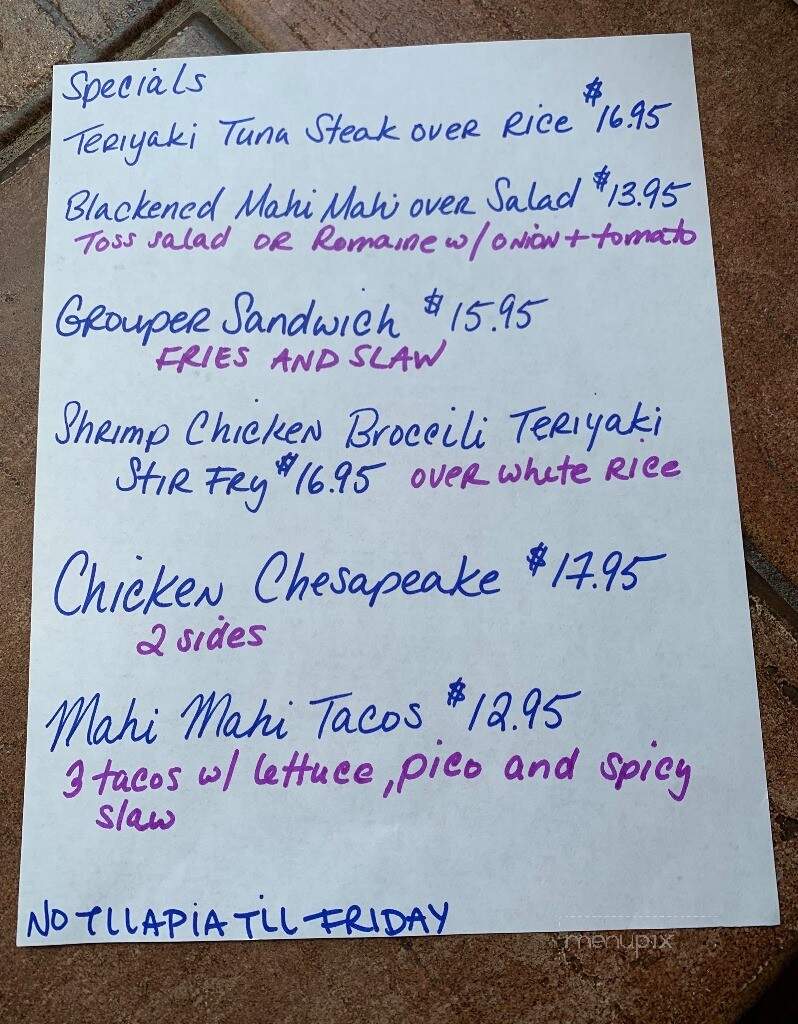 Specials
Teriyaki Tuna Steak over Rice $16.95
Blackened Mahi Mahi over Salad $13.95
Toss salad OR Romaine w/ onion + tomato
Grouper Sandwich $15.95
FRIES AND SLAW
Shrimp Chicken Broccili Teriyaki
Stir Fry $16.95 over white Rice
Chicken Chesapeake $17.95
2 sides
Mahi Mahi Tacos $12.95
3 tacos w/ lettuce, pico and spicy
slaw
NO TLLAPIA TILL FRIDAY
menupix